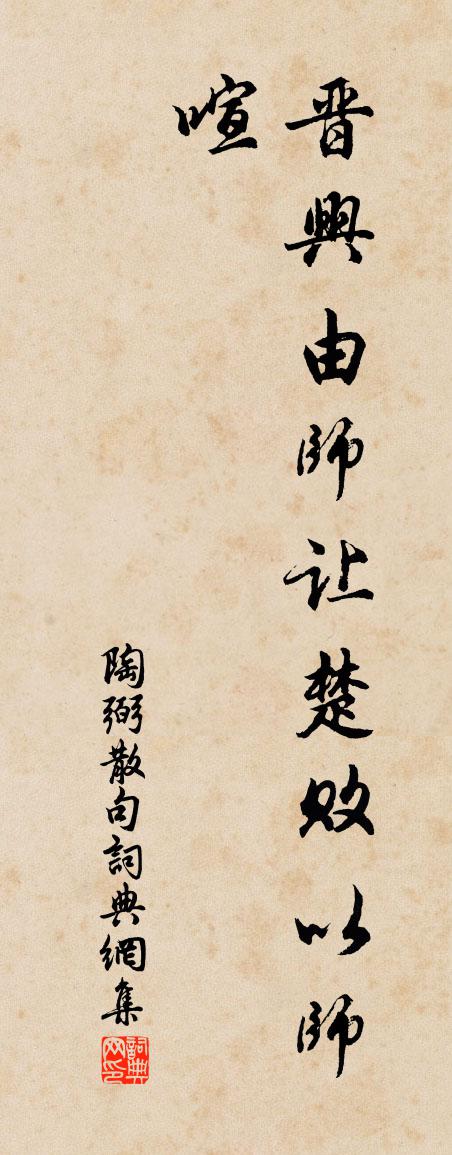 晋興由師让楚敗以師
喧
陶弼散句詞典網集
詞典
网印